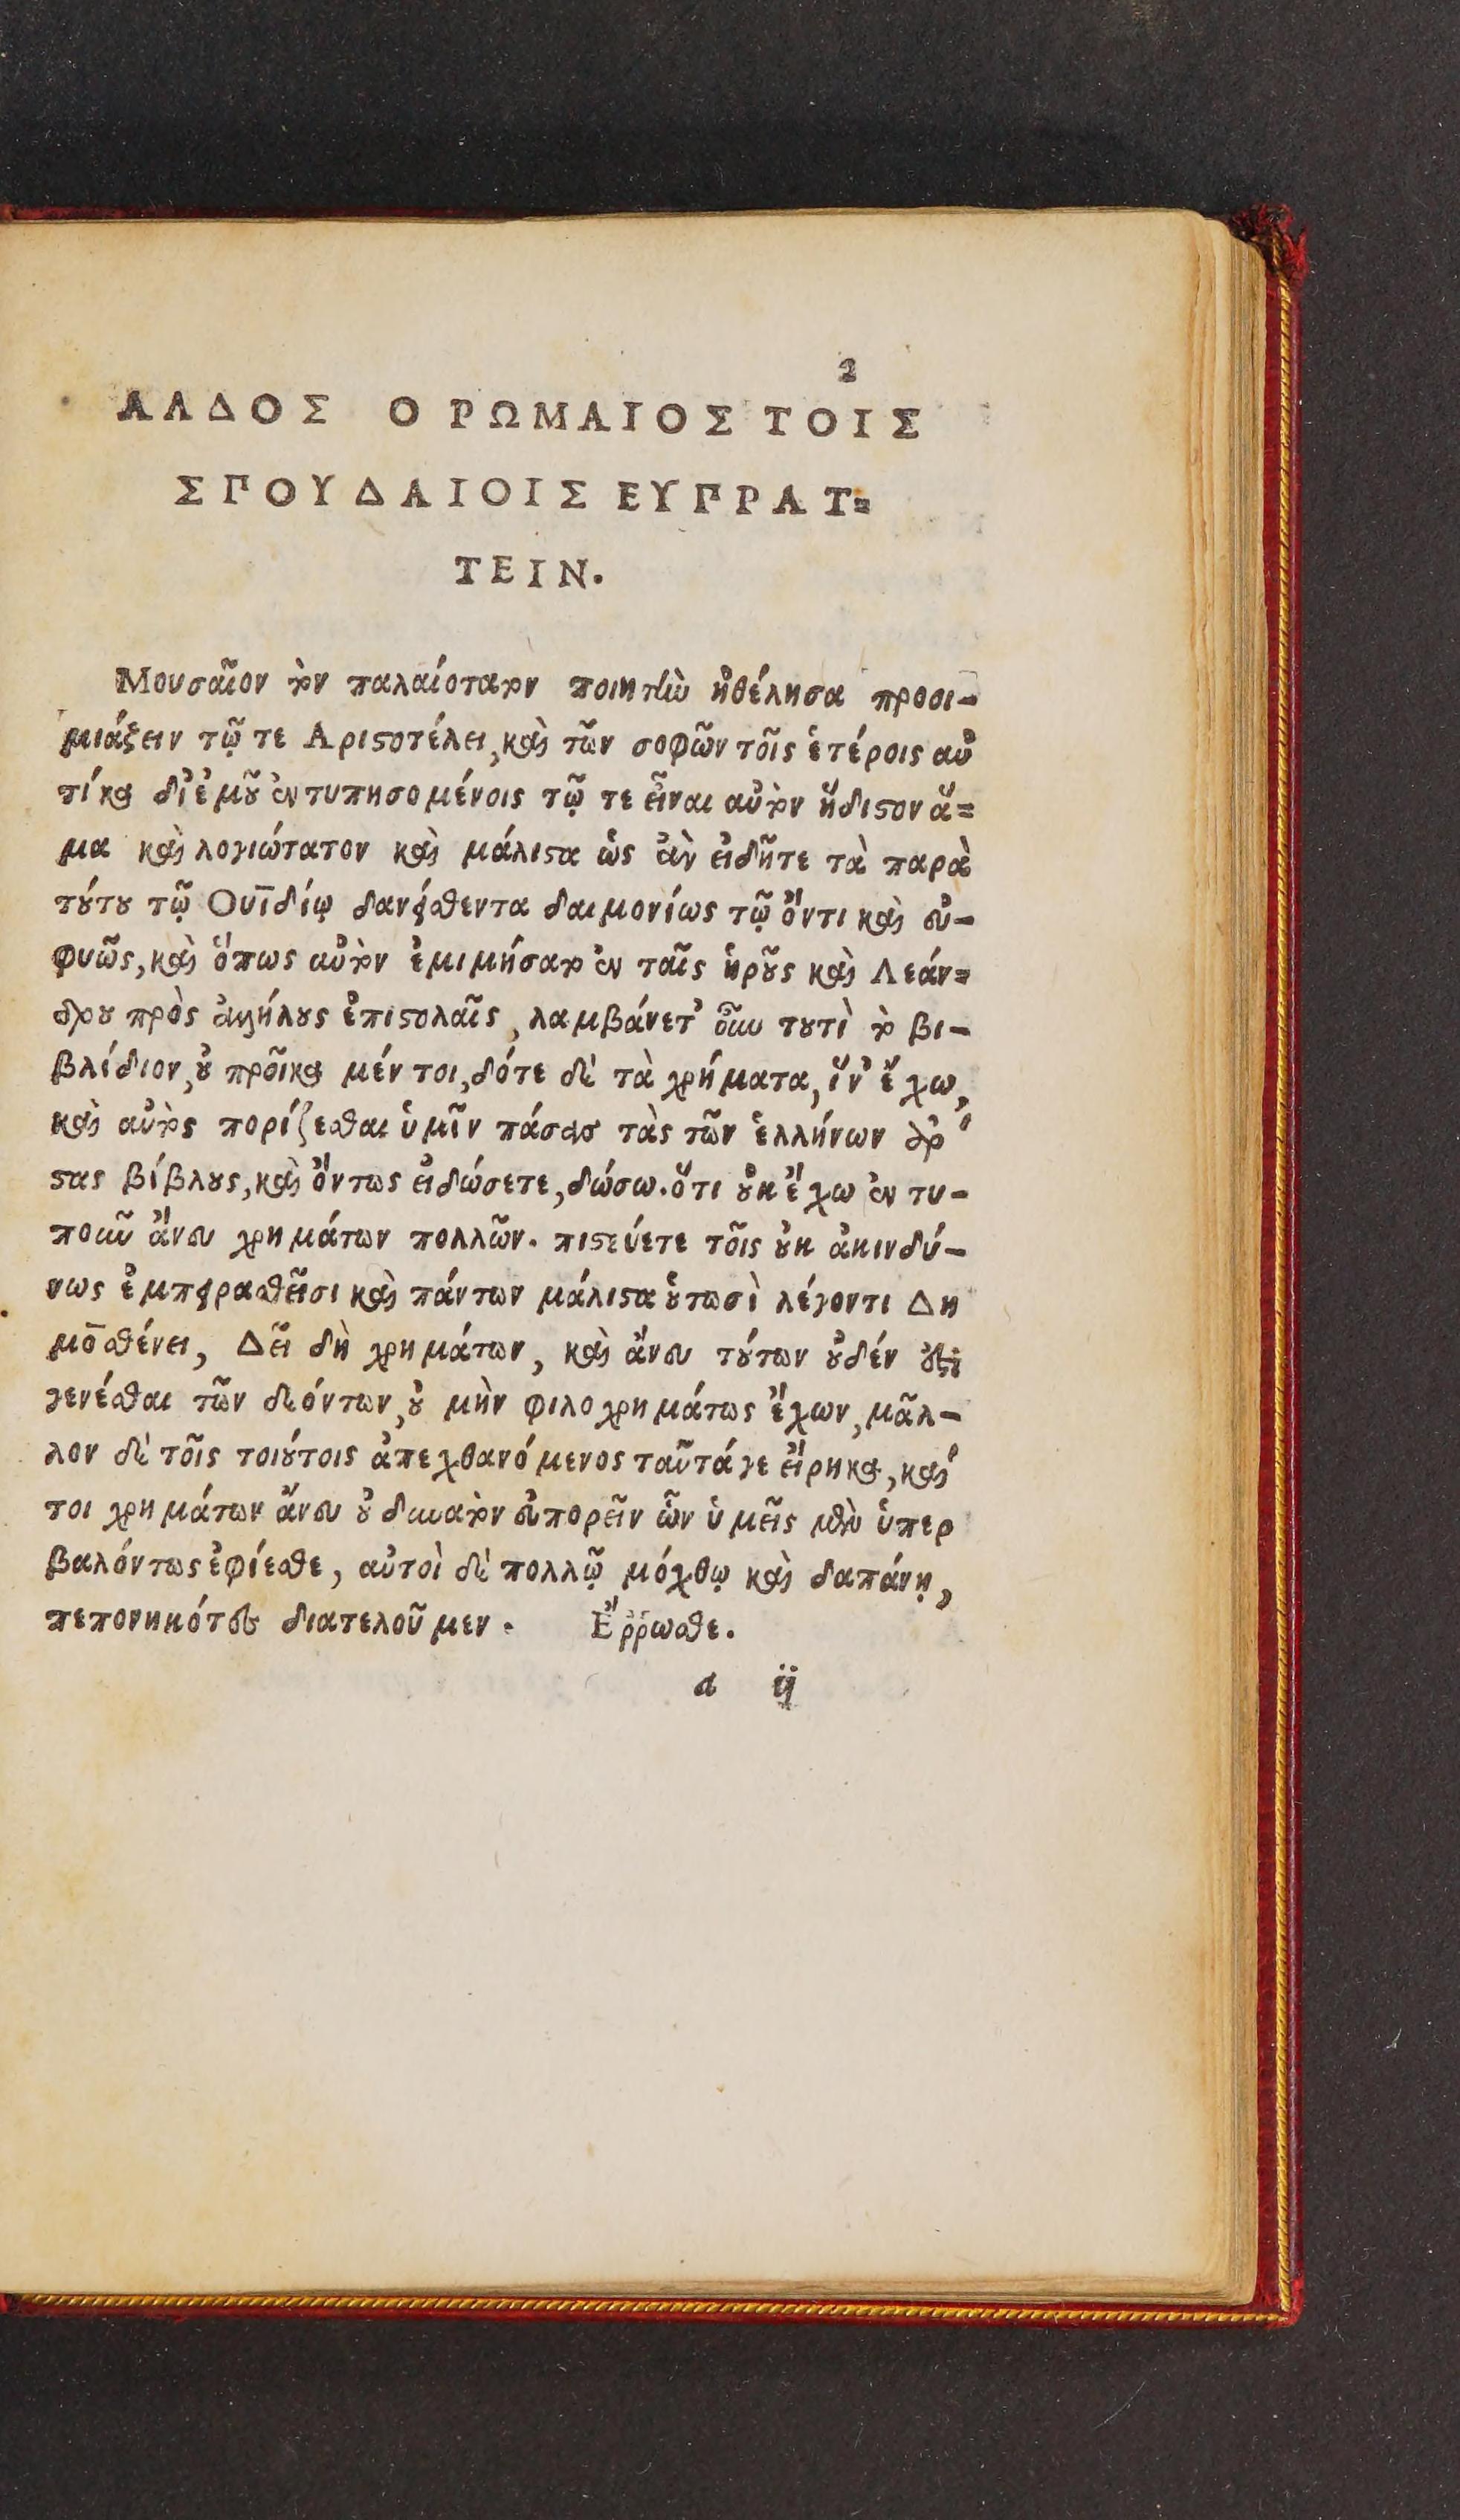 2
ΑΛΔΟΣ Ο ΡΩΜΑΙΟΣ ΤΟΙΣ
ΣΠΟΥΔΑΙΟΙΣ ΕΥΠΡΑΤ=
ΤΕΙΝ.
Μουσαῖον τὸν παλαίοτατον ποιητὴν ἠθέλησα προοι-
μιάζειν τῷ τε Αριστοτέλει, καὶ τῶν σοφῶν τοῖς ἑτέροις αὐ
τίκα δι' ἐμοῦ ἐντυπησομένοις τῷ τε εἶναι αὐτὸν ἥδιστον ἅ=
μα καὶ λογιώτατον καὶ μάλιστα ὡς ἂν εἰδῆτε τὰ παρὰ
τούτου τῷ Ουϊδίῳ δανεισθεντα δαιμονίως τῷ ὄντι καὶ εὐ-
φυῶς, καὶ ὅπως αὐτὸν ἐμιμήσατο ἐν ταῖς ἡροῦς καὶ Λεάν=
δρου πρὸς ἀλλήλους ἐπιστολαῖς, λαμβάνετ' οὖν τουτὶ τὸ βι-
βλίδιον, οὐ προῖκα μέν τοι, δότε δὲ τὰ χρήματα, ἵν' ἔχω,
καὶ αὐτὸς πορίζεσθαι ὑμῖν πάσας τὰς τῶν ἑλλήνων ἀρί
στας βίβλους, καὶ ὄντως εἰ δώσετε, δώσω. ὅτι οὐκ ἔχω ἐν τυ-
ποῦν ἄνευ χρημάτων πολλῶν. πιστεύετε τοῖς οὐκ ἀκινδύ-
νως ἐμπειρασθεῖσι καὶ πάντων μάλιστα οὑτωσὶ λέγοντι Δη
μοσθένει, Δεῖ δὴ χρημάτων, καὶ ἄνευ τούτων οὐδέν ἐστι
γενέσθαι τῶν δεόντων, οὐ μὴν φιλοχρημάτως ἔχων, μᾶλ-
λον δὲ τοῖς τοιούτοις ἀπεχθανόμενος ταῦτά γε εἴρηκα, καί
τοι χρημάτων ἄνευ οὐ δυνατὸν εὐπορεῖν ὧν ὑμεῖς μὲν ὑπερ
βαλόντως ἐφίεσθε, αὐτοὶ δὲ πολλῷ μόχθῳ καὶ δαπάνῃ,
πεπονηκότες διατελοῦμεν. Ἔῤῥωσθε.
a ij